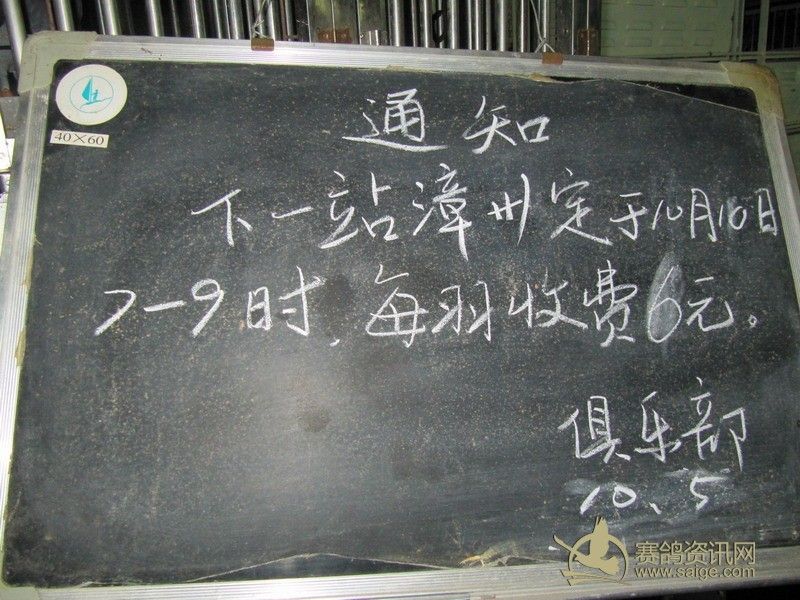 40×60
通知
下一站漳州定于10月10日
7-9时,每羽收费6元。
俱乐部
10、5
赛鸽资讯网
www.saige.com